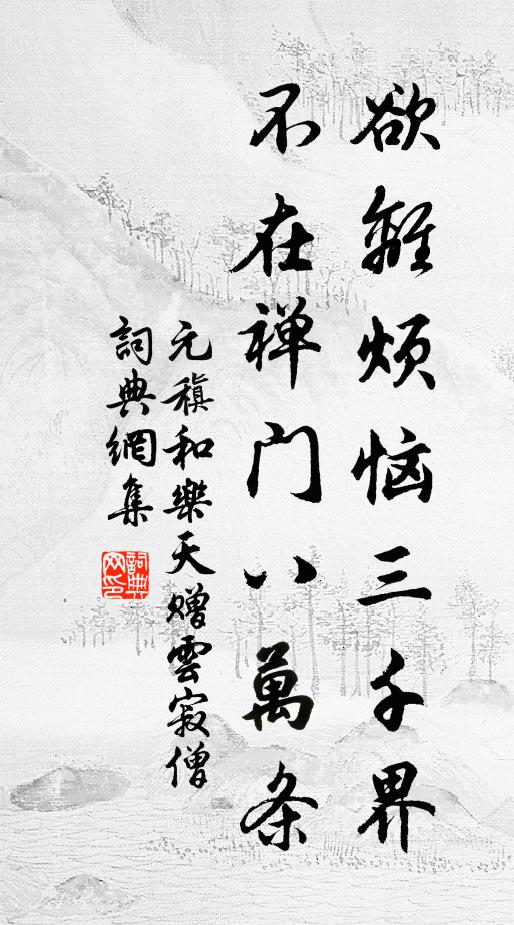 欲離煩恼三千界
不在禅门八萬条
元稹和樂天赠雲寂僧
詞典網集
詞典网印